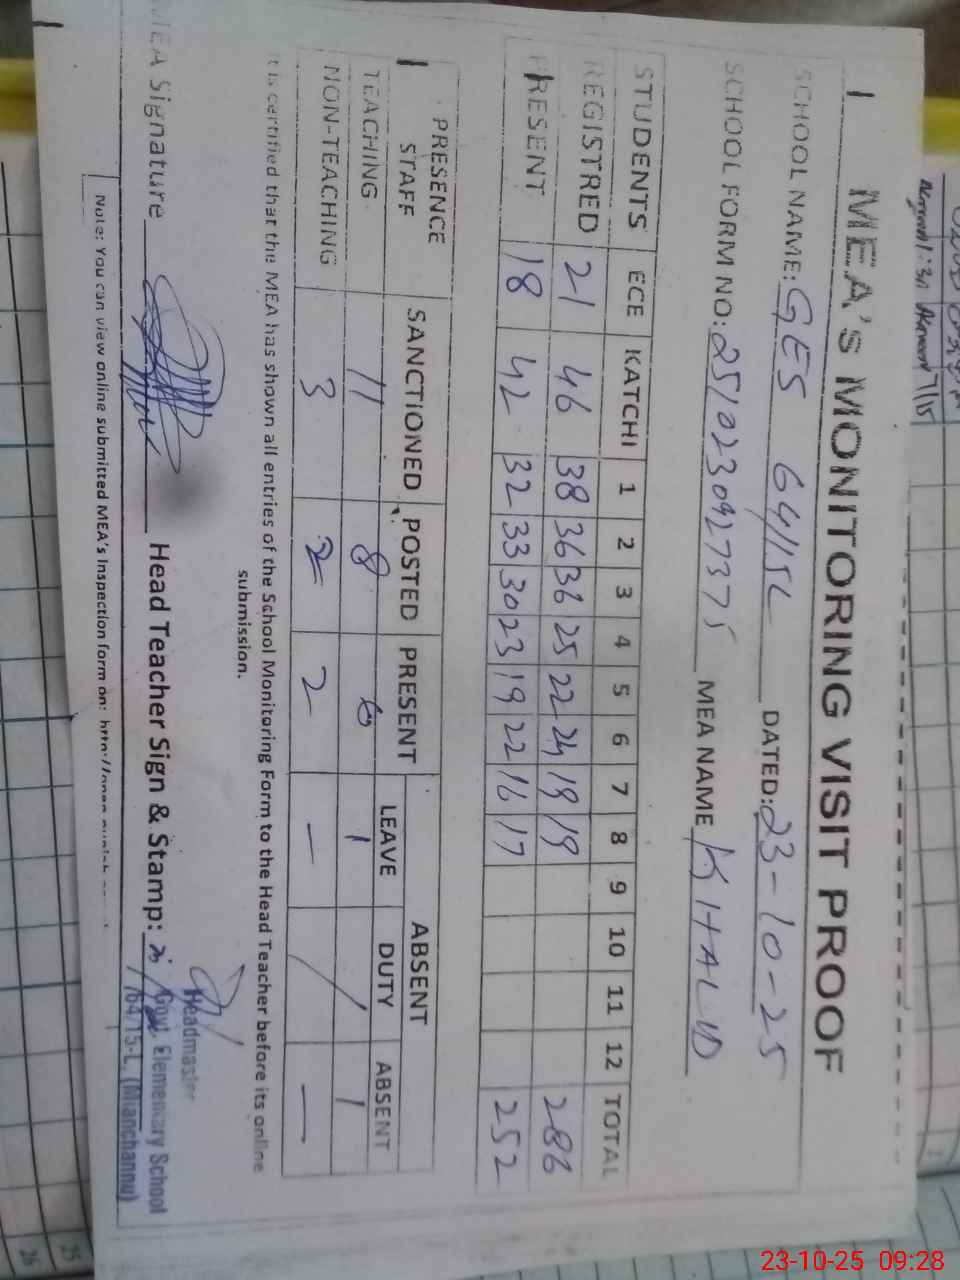 MEA'S MONITORING VISIT PROOF
SCHOOL NAME: GES 64/15L DATED: 23-10-25
SCHOOL FORM NO: 251023092737375 MEA NAME KHALID
STUDENTS ECE KATCHI 1 2 3 4 5 6 7 8 9 10 11 12 TOTAL
REGISTRED 21 46 38 36 36 25 22 24 19 19 286
PRESENT 18 42 32 33 30 23 19 22 16 17 252
PRESENCE STAFF SANCTIONED POSTED PRESENT ABSENT
LEAVE DUTY ABSENT
TEACHING 11 8 6 1 / 1
NON-TEACHING 3 2 2 — —
It is certified that the MEA has shown all entries of the School Monitoring Form to the Head Teacher before its online
submission.
MEA Signature Head Teacher Sign & Stamp:
Headmaster
Govt. Elementary School
64/15-L, (Mianchannu)
Note: You can view online submitted MEA's Inspection form on:
25
26
23-10-25 09:28